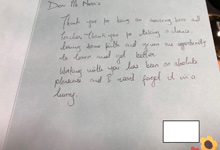 Dear Mr
Thank you for being an amazing boss and
teacher. Thank you for taking a chance,
having some faith and given me opportunity
to learn and get better.
Working with you has been an absolute
pleasure and I won't forget it in a
hurry.